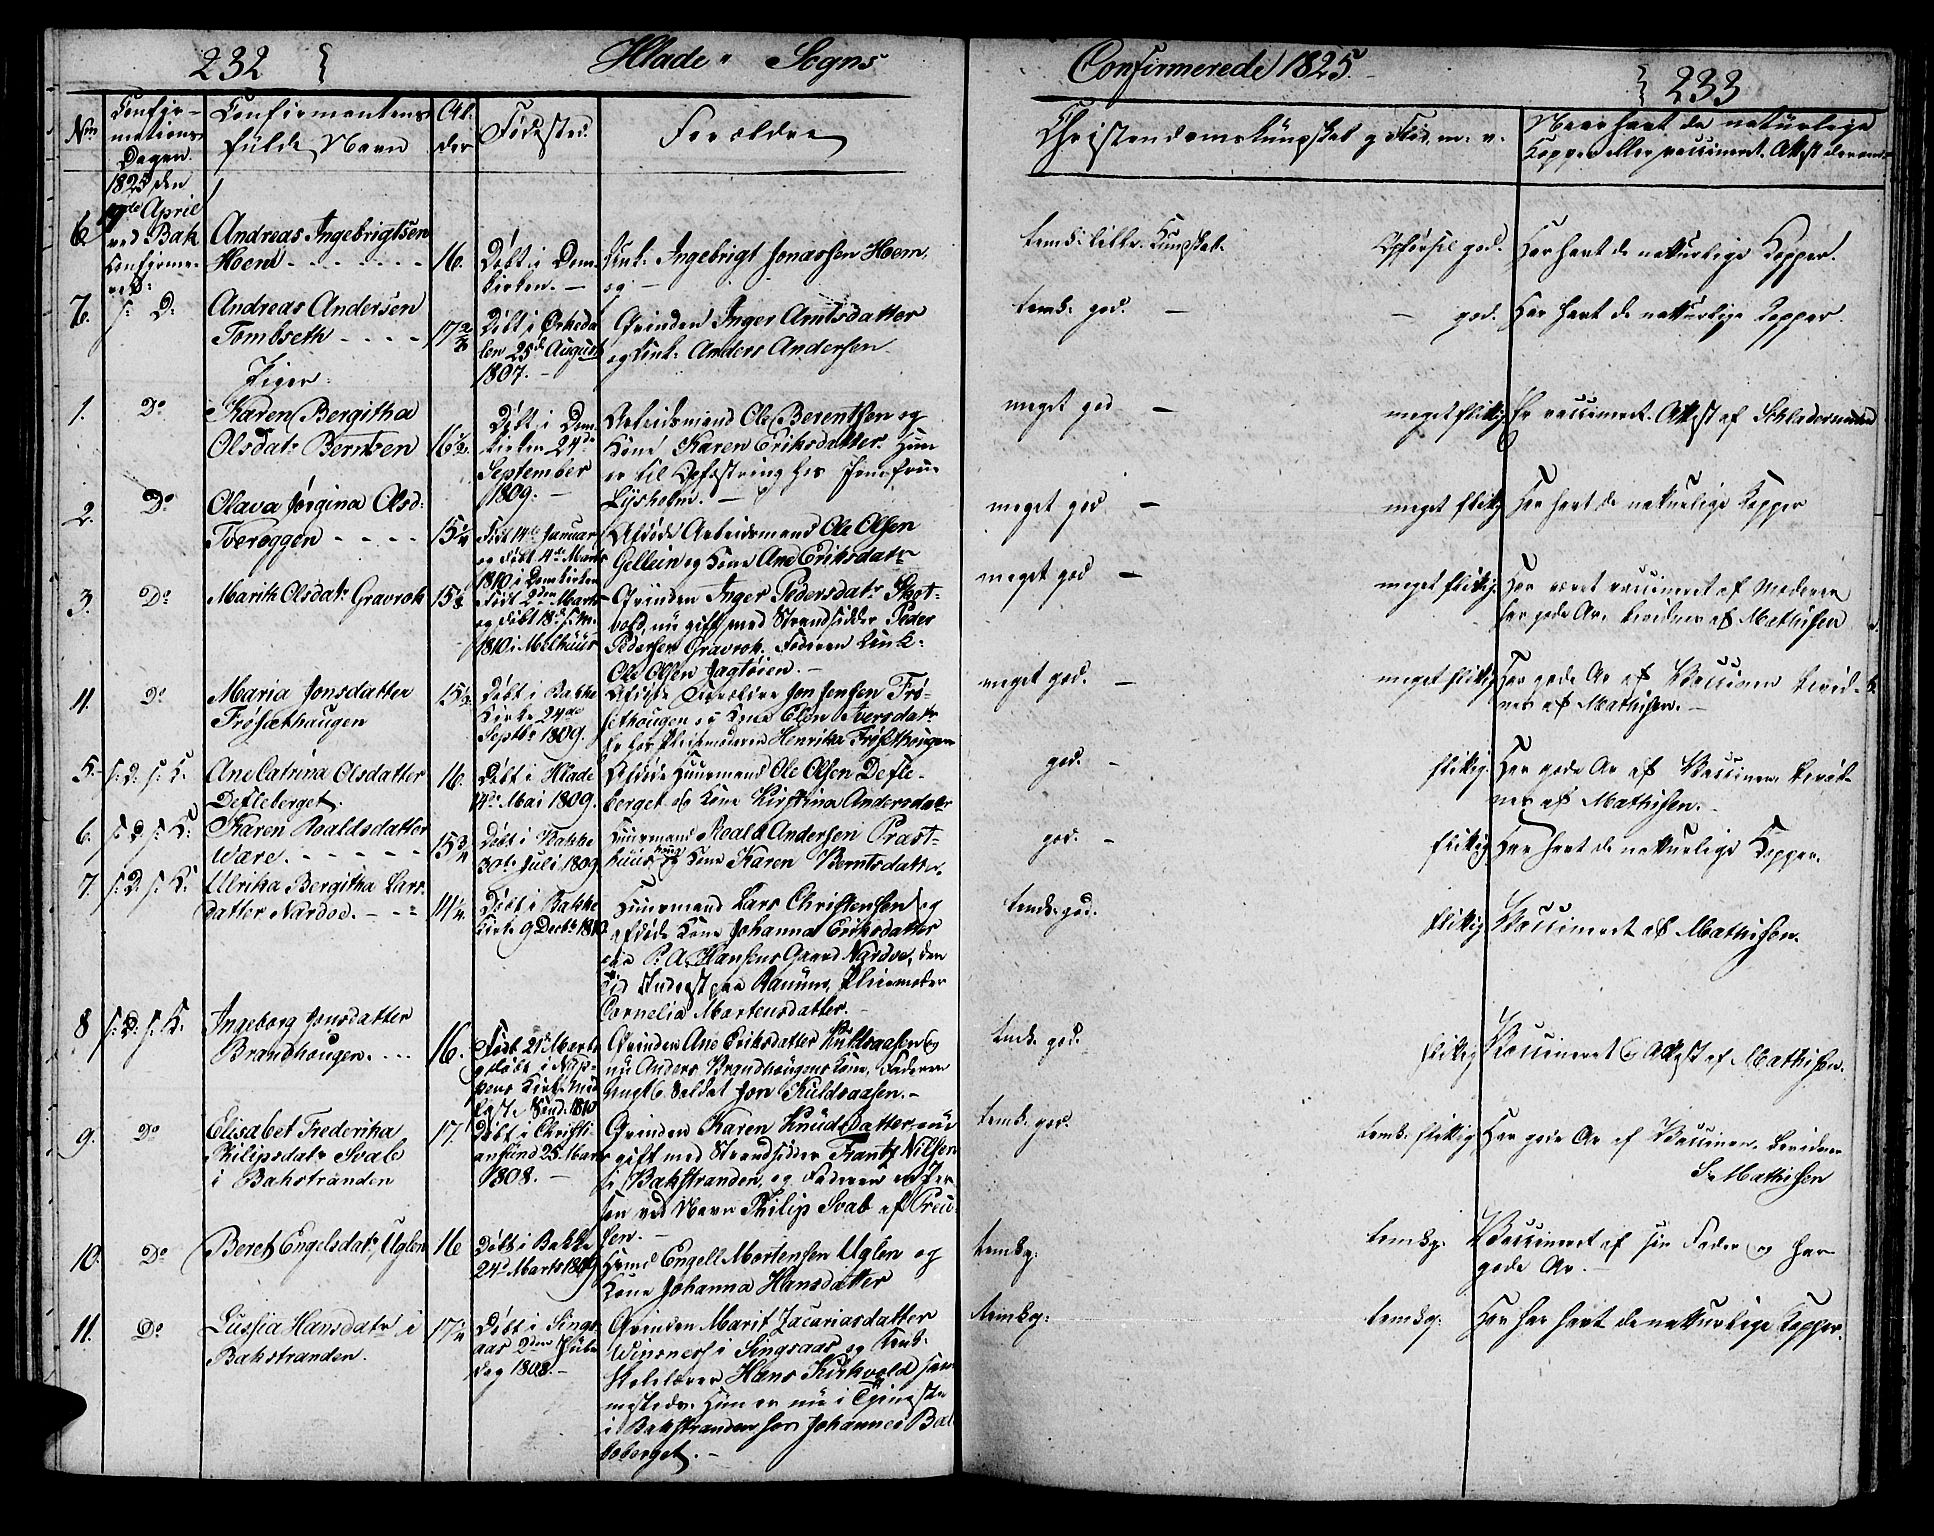 232
Hlade Sogns
Confirmerede 1825.
233
No
Confir-
mations
Dagen.
Confirmantens
fulde Navn
Al-
der
Fødested.
Forældre
Christendomskundskab og Flid, m: v.
Naar havt de naturlige
Kopper eller vaccineret. Attest derom
1825 den
April
ved Bak
Confirme-
ret:
6
Andreas Ingebrigtsen
Hoem
16.
Døbt i Dom-
kirken. -
Ink. Ingebrigt Jonassen Hoem.
og -
temk: liden Kundskab.
Opførsel god.
Har havt de naturlige Kopper.
7.
s: D:
Andreas Andersen
Tombseth
17 2/3
Døbt i Orkeda
len 25d August
1807. -
Qvinden Inger Arntsdatter
og Ink: Anders Andersen.
temk: god. -
- god.
Har havt de naturlige Kopper.
Piger:
1.
Do
Karen Bergitha
Olsdatr Berntsen
16 1/2.
Døbt i Dom-
kirken 24de
September
1809. -
Arbeidsmand Ole Berentsen og
Kone Karen Eriksdatter. Hun
er til Opfostring hos Jomfrue
Lysholm. -
meget god -
meget flittig
Er vaccineret. Attest af
2.
Do
Olava Jørgina Olsd:
Tveræggen
15 1/4
Født 14de Januar
og døbt 4de Marts
1810 i Domkirken
Afdøde Arbeidsmand Ole Olsen
Gellein og Kone Ane Eriksdatr
meget god -
meget flittig
Har havt de naturlige Kopper
3.
Do
Marit Olsdatr Gravrok
Født 2den Marts
og døbt 18d s: M.
1810 i Melhuus
Qvinden Inger Pedersdatr Skot-
vold, nu gift med Strandsidder Peder
Pedersen Gravrok. Faderen Ink.
Ole Olsen Jagtøien. -
meget god -
meget flittig
Har været vaccineret af Moderen
har gode Ar. Beviidnes af Mathisen
4.
Do
Maria Jonsdatter
Frøsæthaugen
15 1/2
Døbt i Bakke
Kirke 24de
Septbr 1809.
Afdøde Forældre Jon Jensen Frø-
sethougen og Kone Elen Iversdatr
Er hos Pleiemoderen Henrika Frøsethougen
meget god. -
meget flittig
Har gode Ar af Vaccinen Bevid-
nes af Mathisen. -
5.
s: D: s: K:
Ane Catrina Olsdatter
Defleberget.
16.
Døbt i Hlade
14de Mai 1809.
Afdøde Huusmand Ole Olsen Defle-
berget og Kone Kirstina Andersdatter
god. -
flittig.
Har gode Ar af Vaccinen. Bevid-
nes af Mathisen. -
6.
s: D: s: K:
Karen Roaldsdatter
Ware.
15 3/4
Døbt i Bakke
30te Juli 1809
Huusmand Roald Andersen Præst-
huus og Kone Karen Berntsdatter.
god. -
flittig
Har havt de naturlige Kopper.
7.
s: D: s: K:
Ulrika Bergitha Lars-
datter Nardoe.
14 1/2.
Døbt i Bakke
Kirke 9 Decbr 1810
Huusmand Lars Christensen og
afdøde Kone Johanna Eriksdatter
P. A. Hansens Gaard Nardoe, den
Tid Inderst paa Ranum, Pleiemoder
Cornelia Mortensdatter. -
temk: god.
flittig
Vaccineret af Mathisen.
8
s: D: s: K:
Ingeborg Jonsdatter
Brandhougen.
16.
Født 21de Marts
og døbt i
Kirke
Sønd. 1810
Qvinden Ane Eriksdatter Kuldsaasen og
nu Anders Brandhougens Kone, Faderen
Ungk: Soldat Jon Kuldsaasen. -
temk. god.
flittig
Vaccineret og Attest af Mathisen.
9.
Do
Elisabet Frederika
Philipsdatr Svab
i Bakstranden
17.
Døbt i Christi-
ansund 25. Marts
1808. -
Qvinden Karen Knudsdatter, nu
gift med Strandsidder Frantz Nilsen
i Bakstranden, og Faderen en Per
son ved Navn Philip Svab af Preu-
sen. -
temk. god.
temk. flittig
Har gode Ar af Vaccinen. Bevidnes
S. Mathisen
10.
Do
Beret Engelsdatr, Uglen
16
Døbt i Bakke
24d Marts 1809
Huusmd Engell Mortensen Uglen og
Kone Johanna Hansdatter
temkg:
temkg:
Vaccineret af sin Fader og har
gode Ar. -
11.
Do
Lussia Hansdatr i
Bakstranden.
17 1/4
Døbt i Sings-
aas 2den Jule-
dag 1808. -
Qvinden Marit Jacariasdatter
Winsness i Singsaas og Enk:
Skolelærer Hans Kirkvold sam-
mesteds. Hun er nu i Tjeneste
i Bakstranden hos Johannes Bak-
keberget. -
temkg:
temkg:
Har havt de naturlige Kopper.